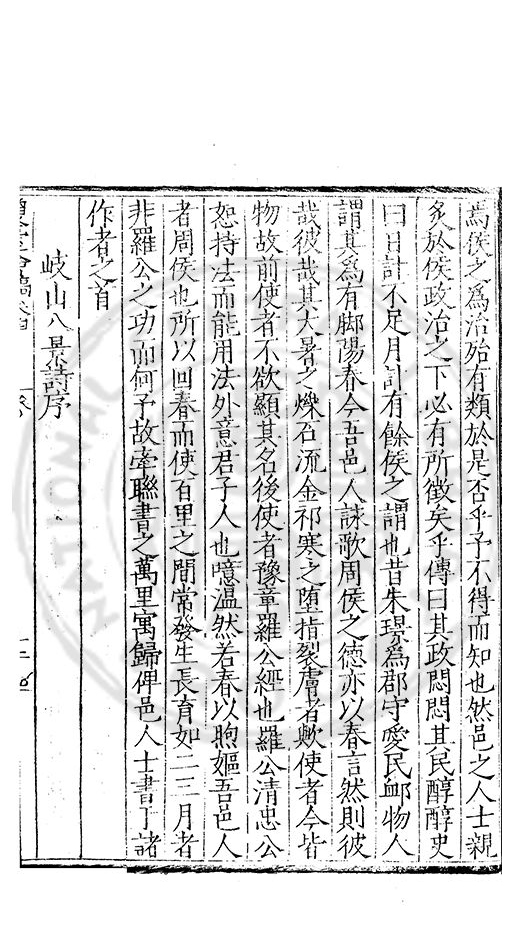 焉侯之為治殆有類於是否乎予不得而知也然邑之人士親
炙於侯政治之下必有所徵矣乎傳曰其政悶悶其民醇醇史
曰日計不足月計有餘侯之謂也昔朱璟為郡守愛民衈物人
謂其為有脚陽春今吾邑人詠歌周侯之德亦以春言然則彼
哉彼哉其大暑之爍石流金祁寒之墮指裂膚者歟使者今皆
物故前使者不欲顯其名後使者豫章羅公經也羅公清忠公
恕持法而能用法外意君子人也噫溫然若春以煦嫗吾邑人
者周侯也所以回春而使百里之間常發生長育如二三月者
非羅公之功而何予故牽聯書之萬里寓歸俾邑人士書于諸
作者之首
岐山八景詩序